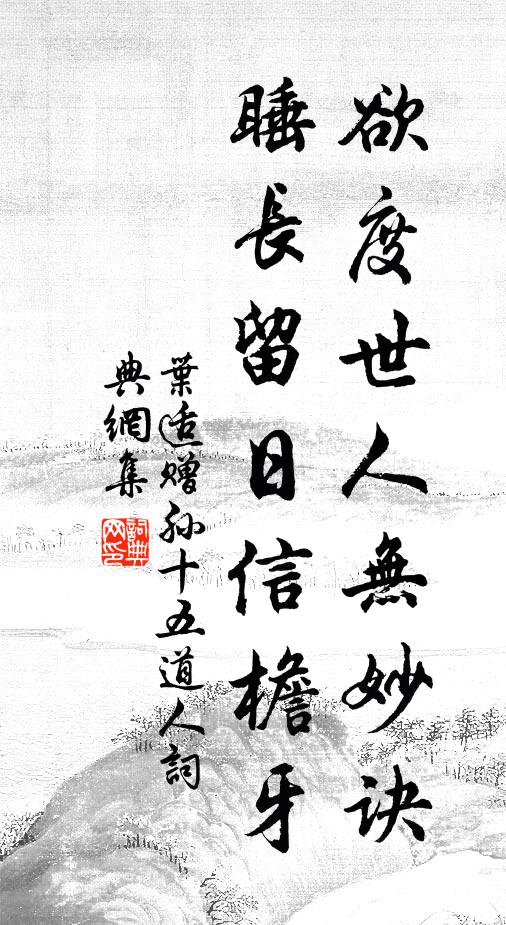 欲度世人無妙訣
睡長留日信檐牙
葉适贈孫十五道人詞
典網集
詞典网印